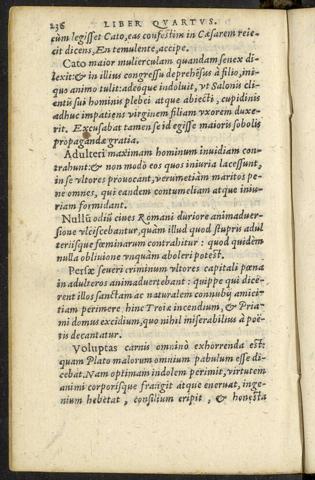 236 LIBER QVARTVS.
cùm legisset Cato, eas confestim in Cæsarem reie-
cit dicens, En temulente, accipe.
Cato maior mulierculam quandam senex di-
lexit: & in illius congressu deprehẽsus à filio, ini-
quo animo tulit: adeoque indoluit, vt Salonis cli-
entis sui hominis plebei atque abiecti, cupidinis
adhuc impatiens virginem filiam vxorem duxe-
rit. Excusabat tamen se id egisse maioris sobolis
propagandæ gratia.
Adulteri maximam hominum inuidiam con-
trahunt: & non modò eos quos iniuria lacessunt,
in se vltores prouocant, verumetiàm maritos pe-
ne omnes, qui eandem contumeliam atque iniu-
riam formidant.
Nullũ odiũ ciues Romani duriore animaduer-
sione vlciscebantur, quàm illud quod stupris adul
teriisque fœminarum contrahitur: quod quidẽm
nulla obliuione vnquàm aboleri potest.
Persæ seueri criminum vltores capitali pœna
in adulteros animaduertebant: quippe qui dice-
rent illos sanctam ac naturalem connubij amici-
tiam perimere. hinc Troiæ incendium, & Pria-
mi domus excidium, quo nihil miserabilius à poë-
tis decantatur.
Voluptas carnis omninò exhorrenda est:
quam Plato malorum omnium pabulum esse di-
cebat. Nam optimam indolem perimit, virtutem
animi corporisque frangit atque eneruat, inge-
nium hebetat, consilium eripit, & honesta